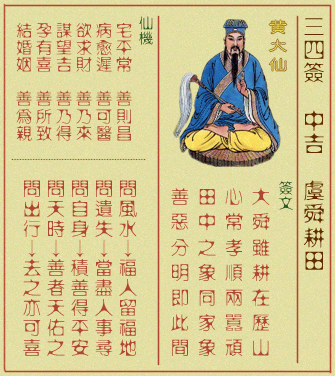 三四簽 中吉 虞舜耕田
黃大仙
簽文
大舜雖耕在歷山
心常孝順兩囂頑
田中之象同家象
善惡分明即此間
仙機
宅平常 善則昌
病愈遲 善可醫
欲求財 善乃來
謀望吉 善乃得
孕有喜 善所致
結婚姻 善爲親
問風水→福人留福地
問遺失→當盡人事尋
問自身→積善得平安
問天時→善者天佑之
問出行→去之亦可喜